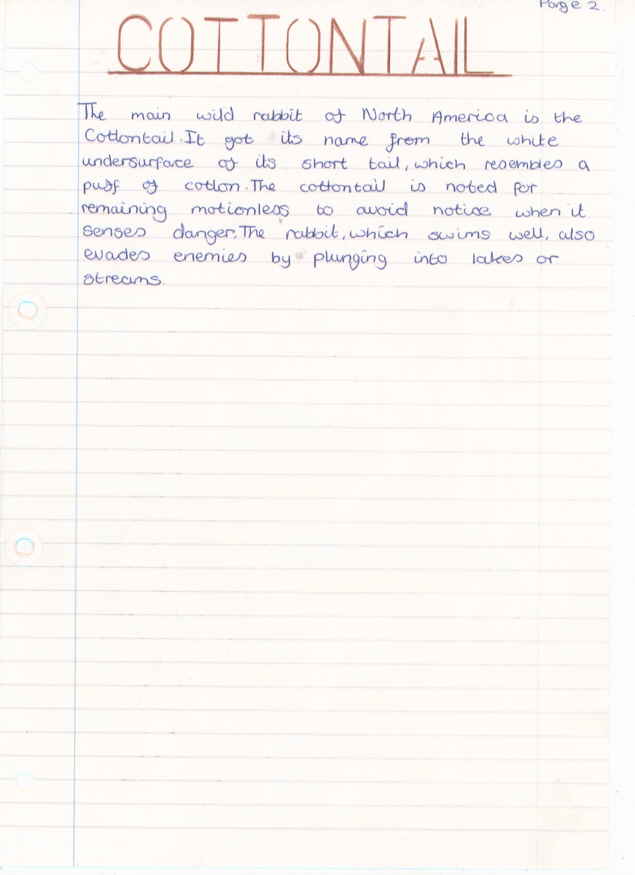 Page 2.
COTTONTAIL
The main wild rabbit of North America is the
Cottontail. It got its name from the white
undersurface of its short tail, which resembles a
puff of cotton. The cottontail is noted for
remaining motionless to avoid notice when it
senses danger. The rabbit, which swims well, also
evades enemies by plunging into lakes or
streams.